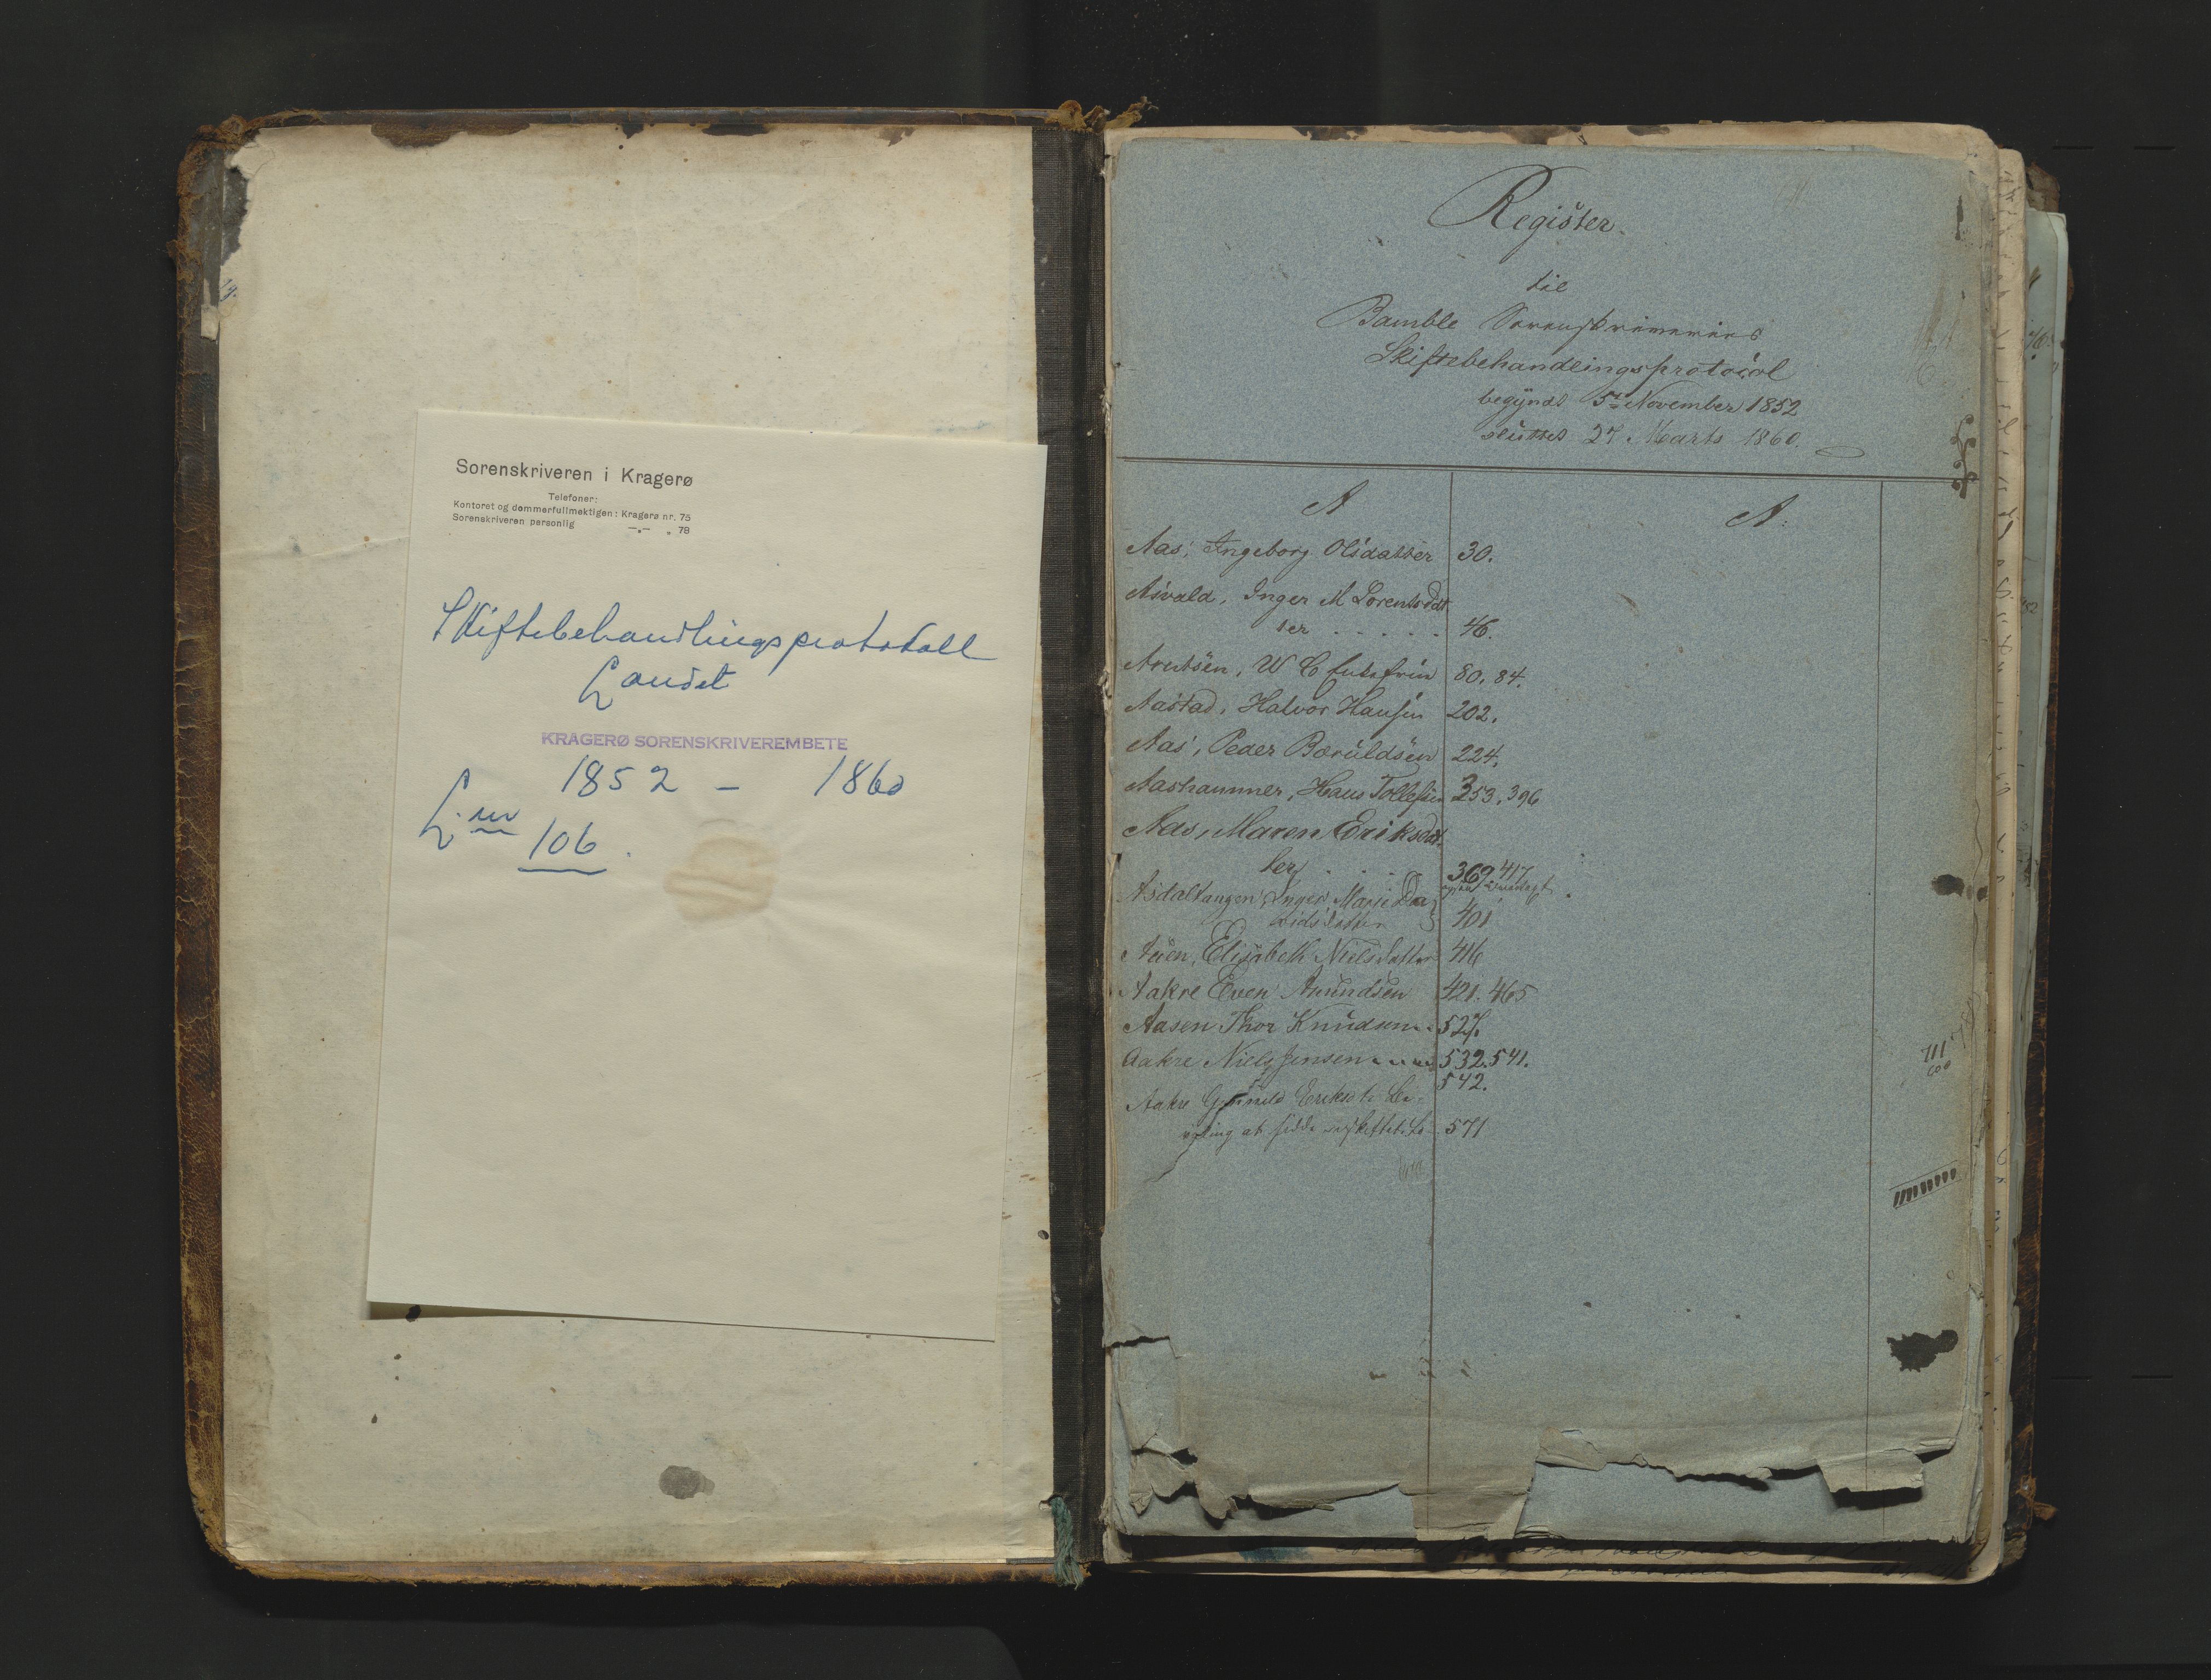 Sorenskriveren i Kragerø
Telefoner:
Kontoret og dommerfullmektigen: Kragerø nr. 75
Sorenskriveren personlig —„— „ 78
Skiftebehandlingsprotokoll
Landet
KRAGERØ SORENSKRIVEREMBETE
1852 – 1860
L. nr
106.
Register
til
Bamble Sorenskriveries
Skiftebehandlingsprotocol
begyndt 5te November 1852
sluttet 27 Marts 1860.
A
A.
Aas, Ingeborg Olsdatter 30.
Asvald, Inger M Lorentsdat
ter . . . . . 46.
Arntsen, W C 80. 84.
Aastad, Halvor Hansen 202.
Aas, Peder Baruldsen 224.
Aashammer, Hans Tollefsen 353. 396
Aas, Maren Eriksdat
ter . . . 369. 417
Asdaltangen, Inger Marie Da
vidsdatter 401
Aaen, Elisabeth Nielsdatter 416
Aakre Even Amundsen 421. 465
Aasen Thor Knudsen 527.
Aakre Niels Jensen 532. 541.
542.
Aakre Gunnild Eriksdt. Be
villing at sidde uskiftet Bo 571